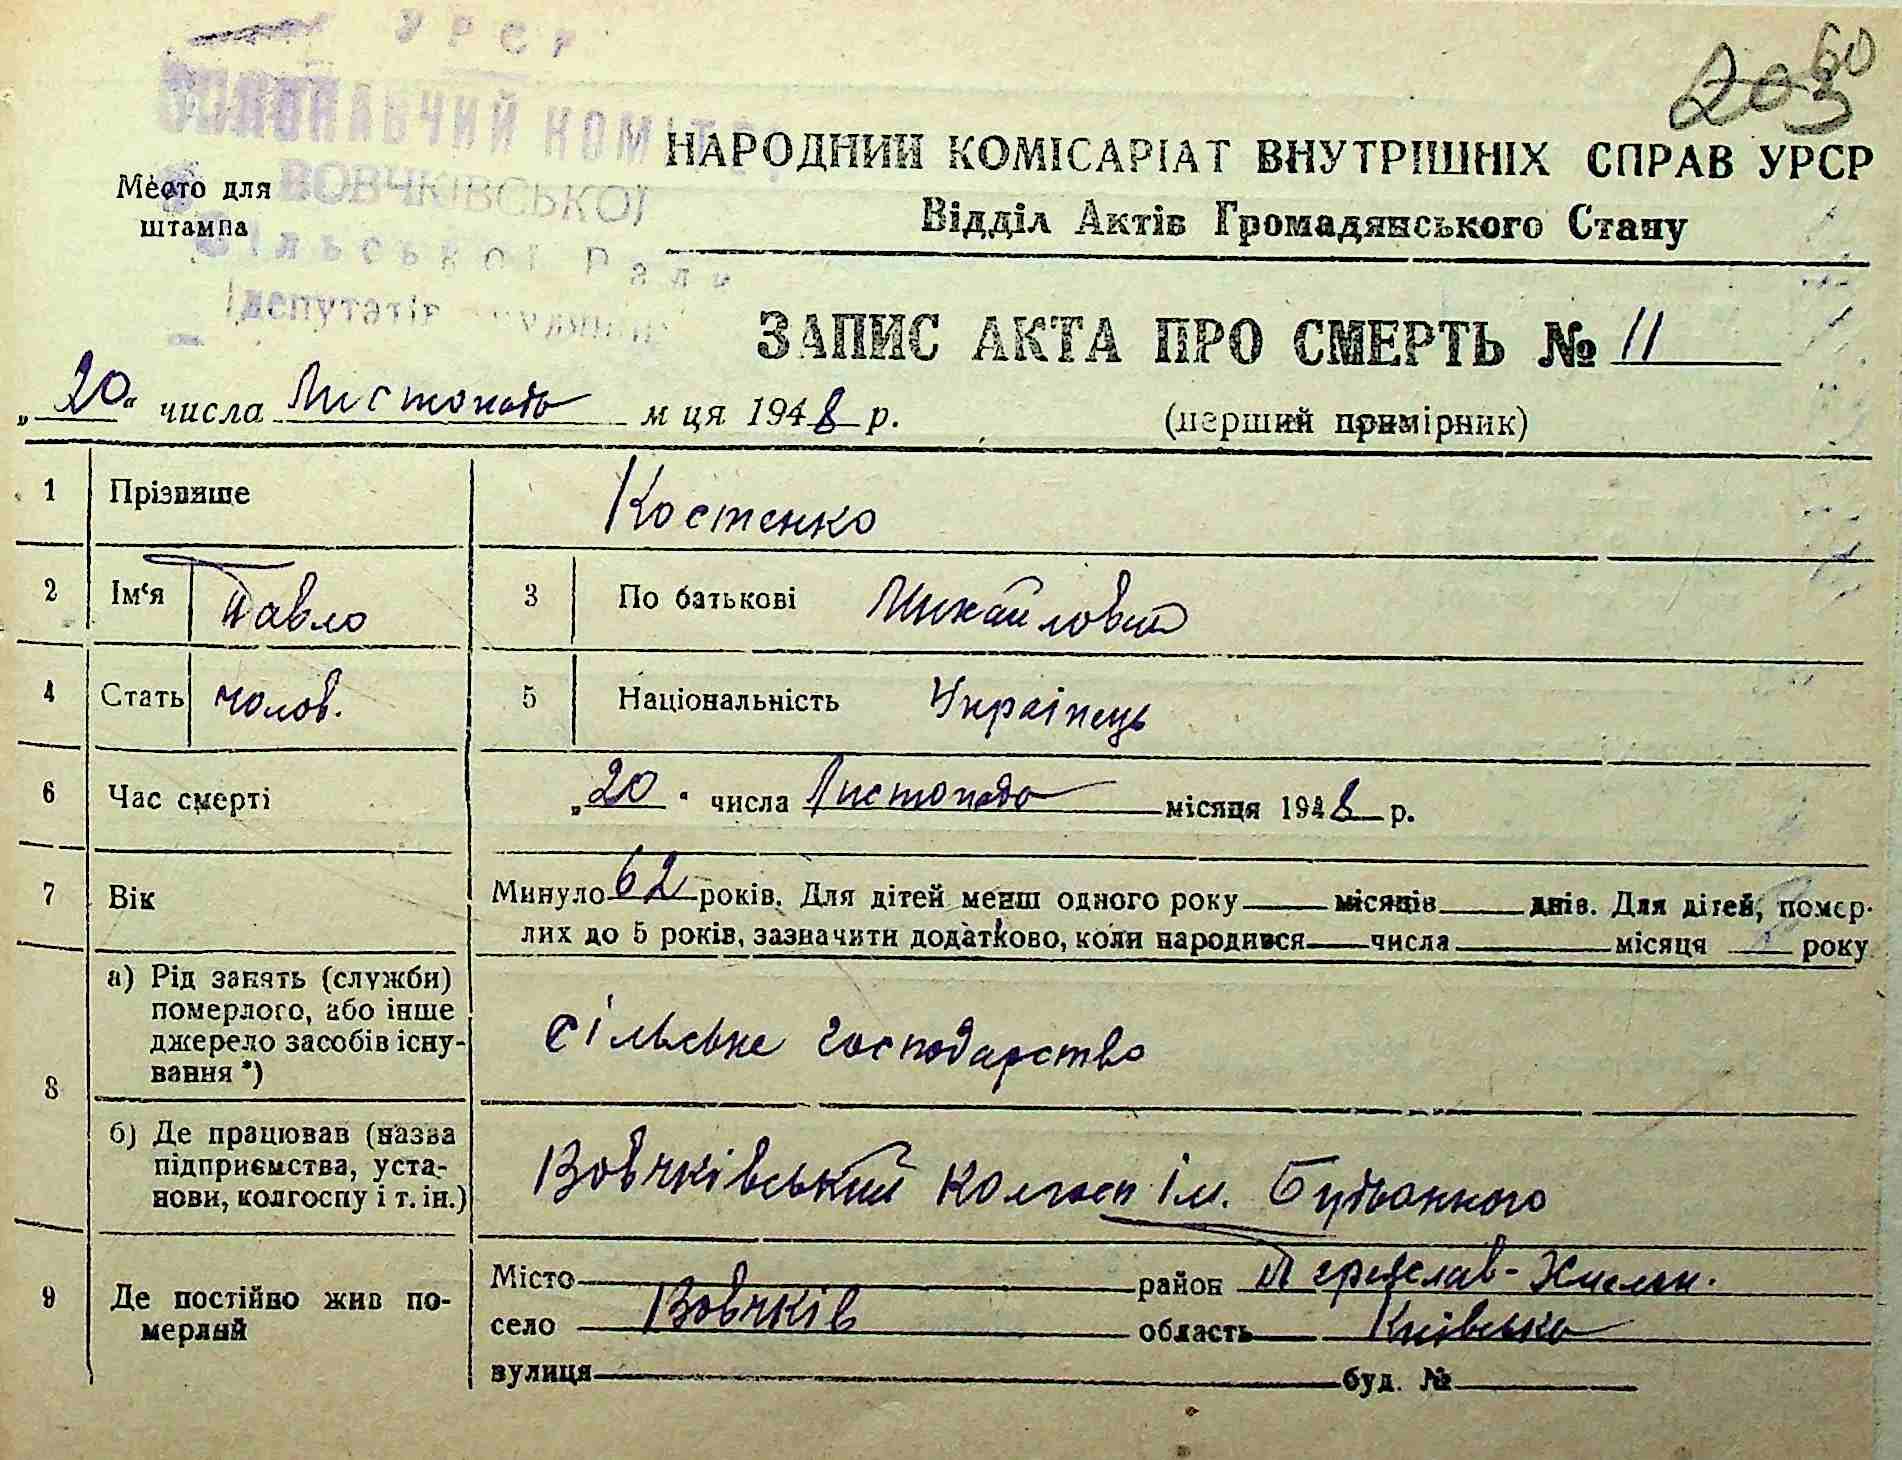 УРСР
203 60
ВИКОНАВЧИЙ КОМІТЕТ
НАРОДНИЙ КОМІСАРІАТ ВНУТРІШНІХ СПРАВ УРСР
Место для штампа
ВОВЧКІВСЬКОЇ
Відділ Актів Громадянського Стану
Сільської Ради
депутатів
ЗАПИС АКТА ПРО СМЕРТЬ № 11
„20“ числа Листопада м ця 1948 р.
(перший примірник)
1 Прізвище Костенко
2 Ім‘я Павло 3 По батькові Михайлович
4 Стать чолов. 5 Національність Українець
6 Час смерті „20“ числа Листопада місяця 1948 р.
7 Вік Минуло 62 років. Для дітей менш одного року місяців днів. Для дітей, помер-
лих до 5 років, зазначити додатково, коли народився числа місяця року
8 а) Рід занять (служби)
померлого, або інше
джерело засобів існу-
вання *)
Сільське господарство
б) Де працював (назва
підприємства, уста-
нови, колгоспу і т. ін.)
Вовчківський колгосп ім. Будьонного
9 Де постійно жив по-
мерлий
Місто район Переяслав-Хмельн.
село Вовчків область Київська
вулиця буд. №